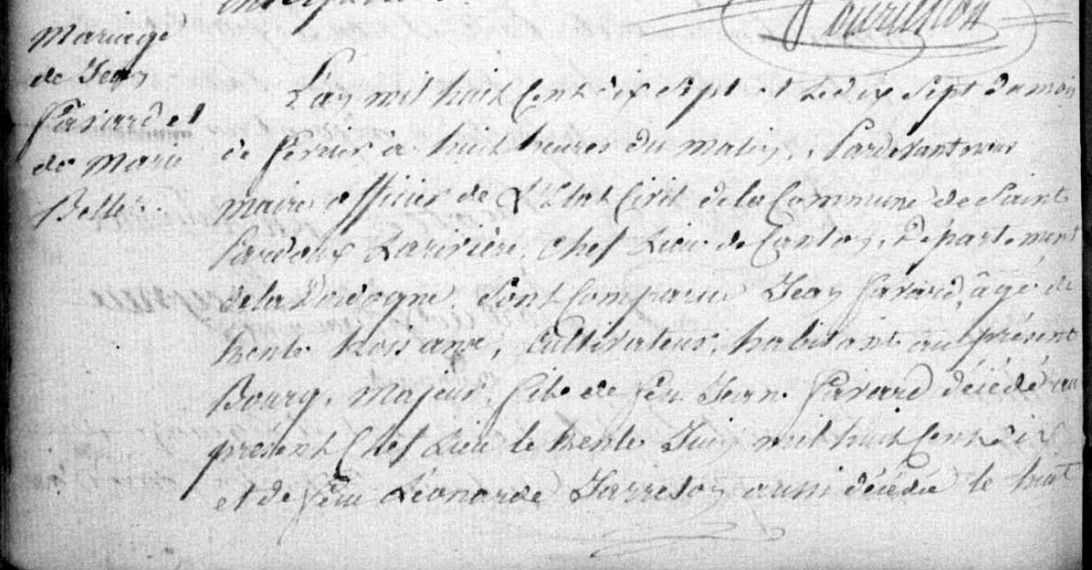 Mariage
de Jean
Favard et
de Marie
Bellet.
L'an mil huit Cent dix sept et le dix sept du mois
de fevrier à huit heures du matin, Pardevant nous
maire officier de L'Etat Civil de la Commune de Saint
Pardoux Larivière, Chef Lieu de Canton, Département
de la Dordogne, sont Comparus Jean Favard, âgé de
trente trois ans, Cultivateur, habitant au présent
Bourg, Majeur, fils de feu Jean Favard décédé au
présent Chef Lieu le trente Juin mil huit Cent dix
et de feue Léonarde aussi décédée le huit